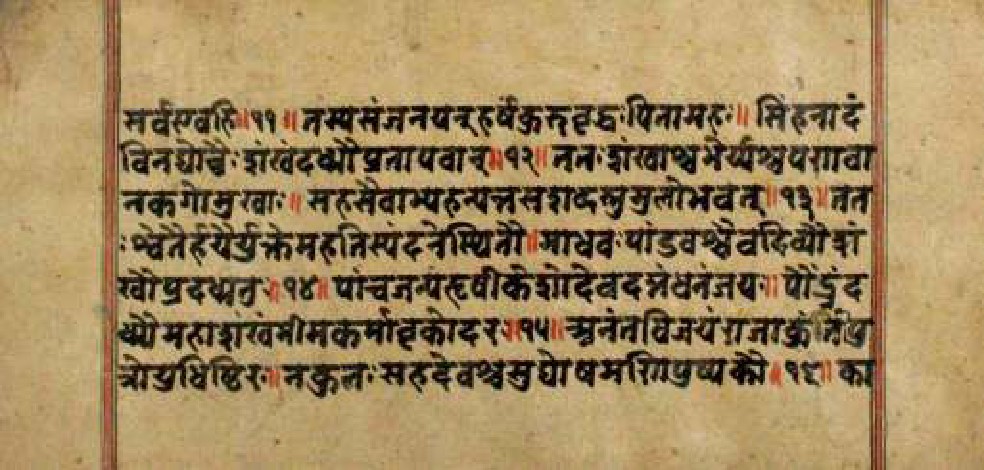 सर्वएवहि॥११॥तस्यसंजनयन्हर्षंकुरुवृद्धःपितामहः॥सिंहनादं
विनद्योच्चैःशंखंदध्मौप्रतापवान्॥१२॥ततःशंखाश्चभेर्य्यश्चपणवा
नकगोमुखाः॥सहसैवाभ्यहन्यन्तसशब्दस्तुमुलोभवत्॥१३॥तत
ःश्वेतैर्हयैर्युक्तेमहतिस्यंदनेस्थितौ॥माधवःपांडवश्चैवदिव्यौशं
खौप्रदध्मतुः॥१४॥पांचजन्यंहृषीकेशोदेवदत्तंधनंजयः॥पौंड्रंद
ध्मौमहाशंखंभीमकर्मावृकोदरः॥१५॥अनंतविजयंराजाकुंतीपु
त्रोयुधिष्ठिरः॥नकुलःसहदेवश्चसुघोषमणिपुष्पकौ॥१६॥का